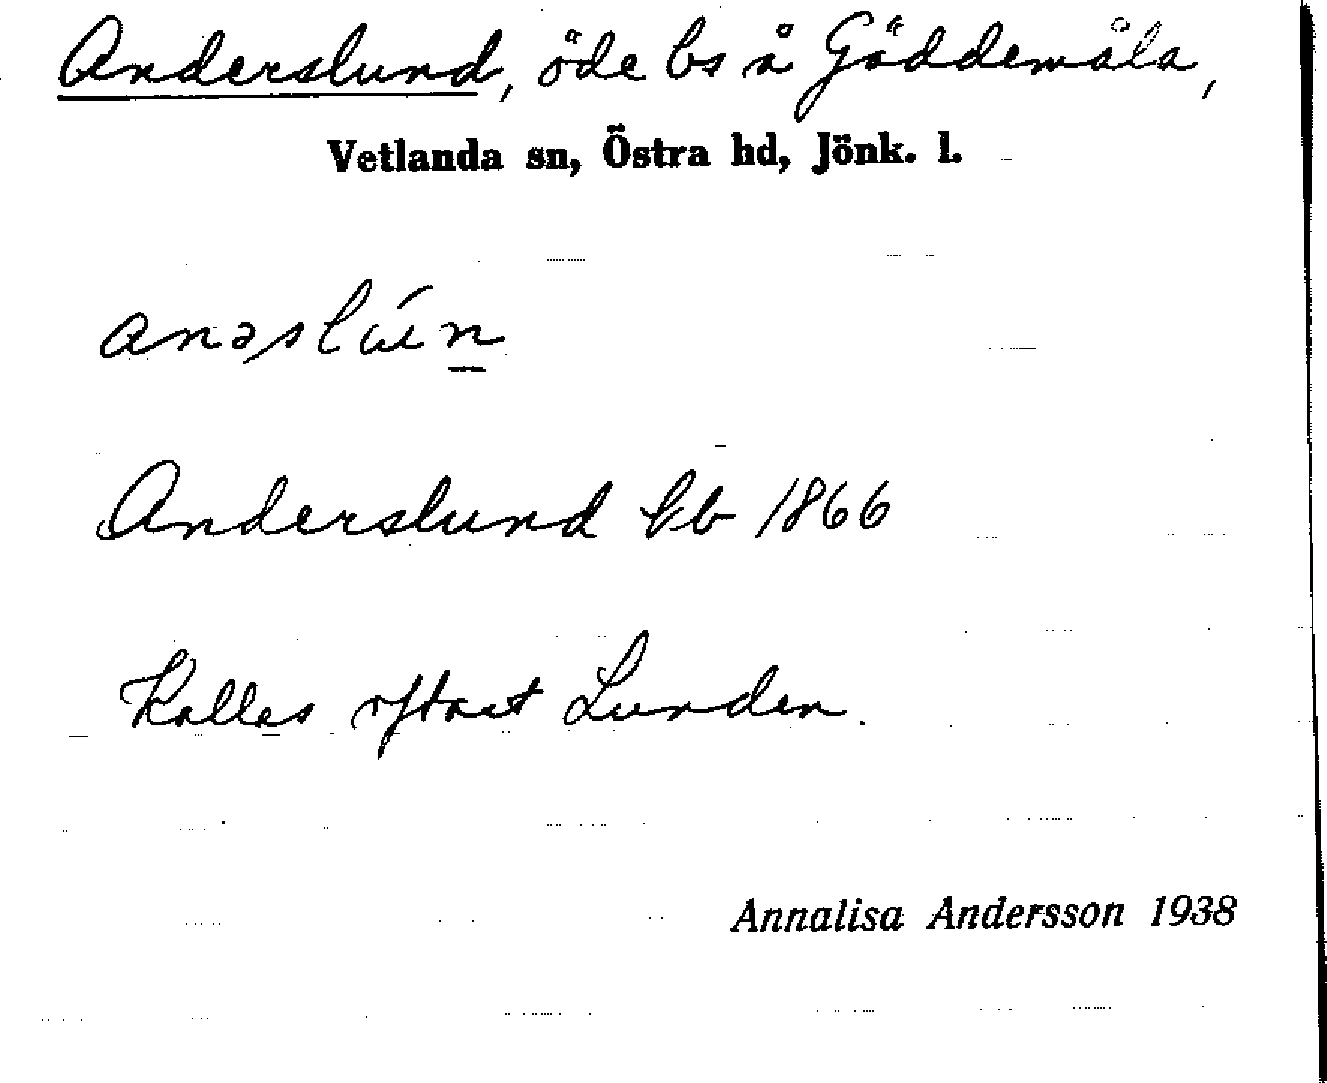 Anderslund, öde bs å Göddemåla,
Vetlanda sn, Östra hd, Jönk. l.
Anderslund kb 1866
Kallas oftast Lunden.
Annalisa Andersson 1938